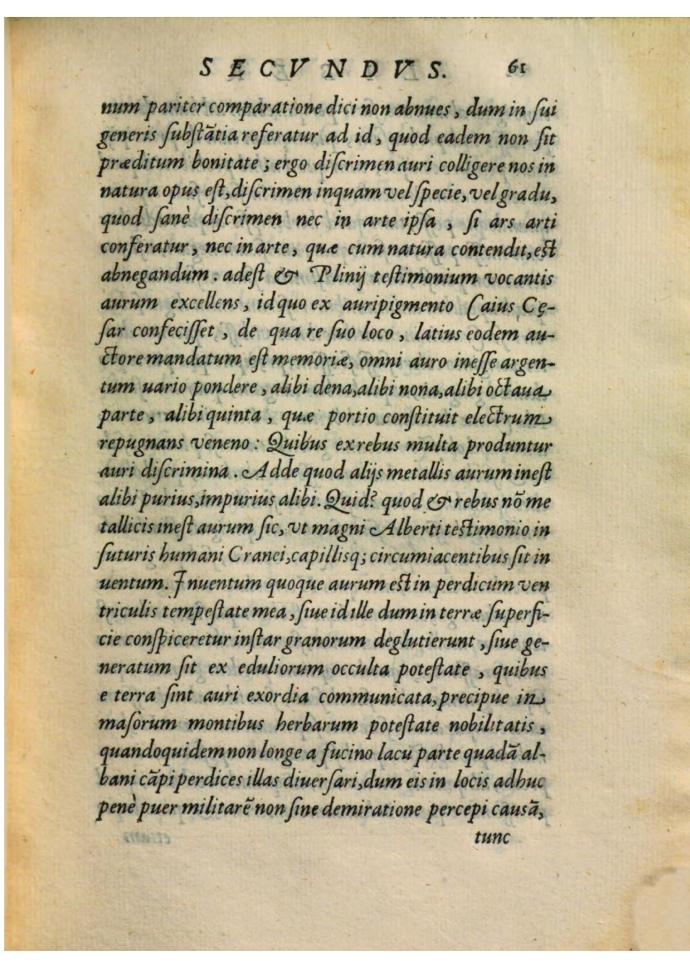 SECVNDVS. 61
num pariter comparatione dici non abnues, dum in sui
generis substãtia referatur ad id, quod eadem non sit
præditum bonitate; ergo discrimen auri colligere nos in
natura opus est, discrimen inquam vel specie, vel gradu,
quod sanè discrimen nec in arte ipsa, si ars arti
conferatur, nec in arte, quæ cum natura contendit, est
abnegandum. adest & Plinij testimonium vocantis
aurum excellens, id quo ex auripigmento Caius Cę-
sar confecisset, de qua re suo loco, latius eodem au-
ctore mandatum est memoriæ, omni auro inesse argen-
tum uario pondere, alibi dena, alibi nona, alibi octaua
parte, alibi quinta, quæ portio constituit electrum
repugnans veneno: Quibus ex rebus multa produntur
auri discrimina. Adde quod alijs metallis aurum inest
alibi purius, impurius alibi. Quid? quod & rebus nõ me
tallicis inest aurum sic, vt magni Alberti testimonio in
futuris humani Cranei, capillisq; circumiacentibus sit in
uentum. Inuentum quoque aurum est in perdicum ven
triculis tempestate mea, siue id ille dum in terræ superfi-
cie conspiceretur instar granorum deglutierunt, siue ge-
neratum sit ex eduliorum occulta potestate, quibus
e terra sint auri exordia communicata, precipue in
masorum montibus herbarum potestate nobilitatis,
quandoquidem non longe a fucino lacu parte quadã al-
bani cãpi perdices illas diuersari, dum eis in locis adhuc
penè puer militarẽ non sine demiratione percepi causã,
tunc